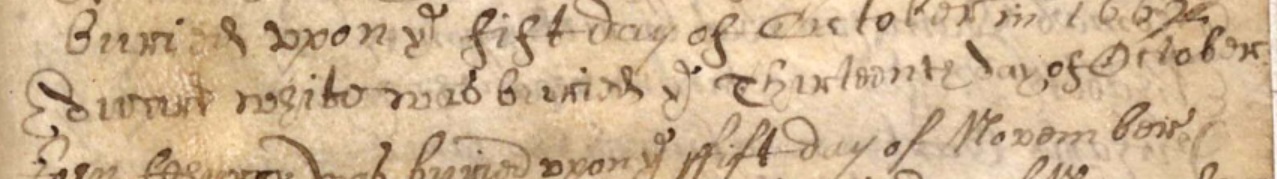 buried vpon ye fift day of October in 166
Edward white was buried ye Thirteenth day of October
was buried vpon ye ffift day of November